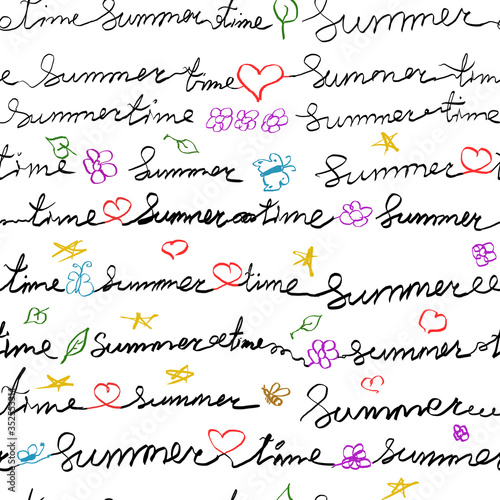 time Summer time Summer
e Summer time Summer tim
Summertime Summertime
time Summer Summer t
time Summer time Summer
time Summer time Summer
time Summer time Summer t
time Summer time Summer
Summer time Summer